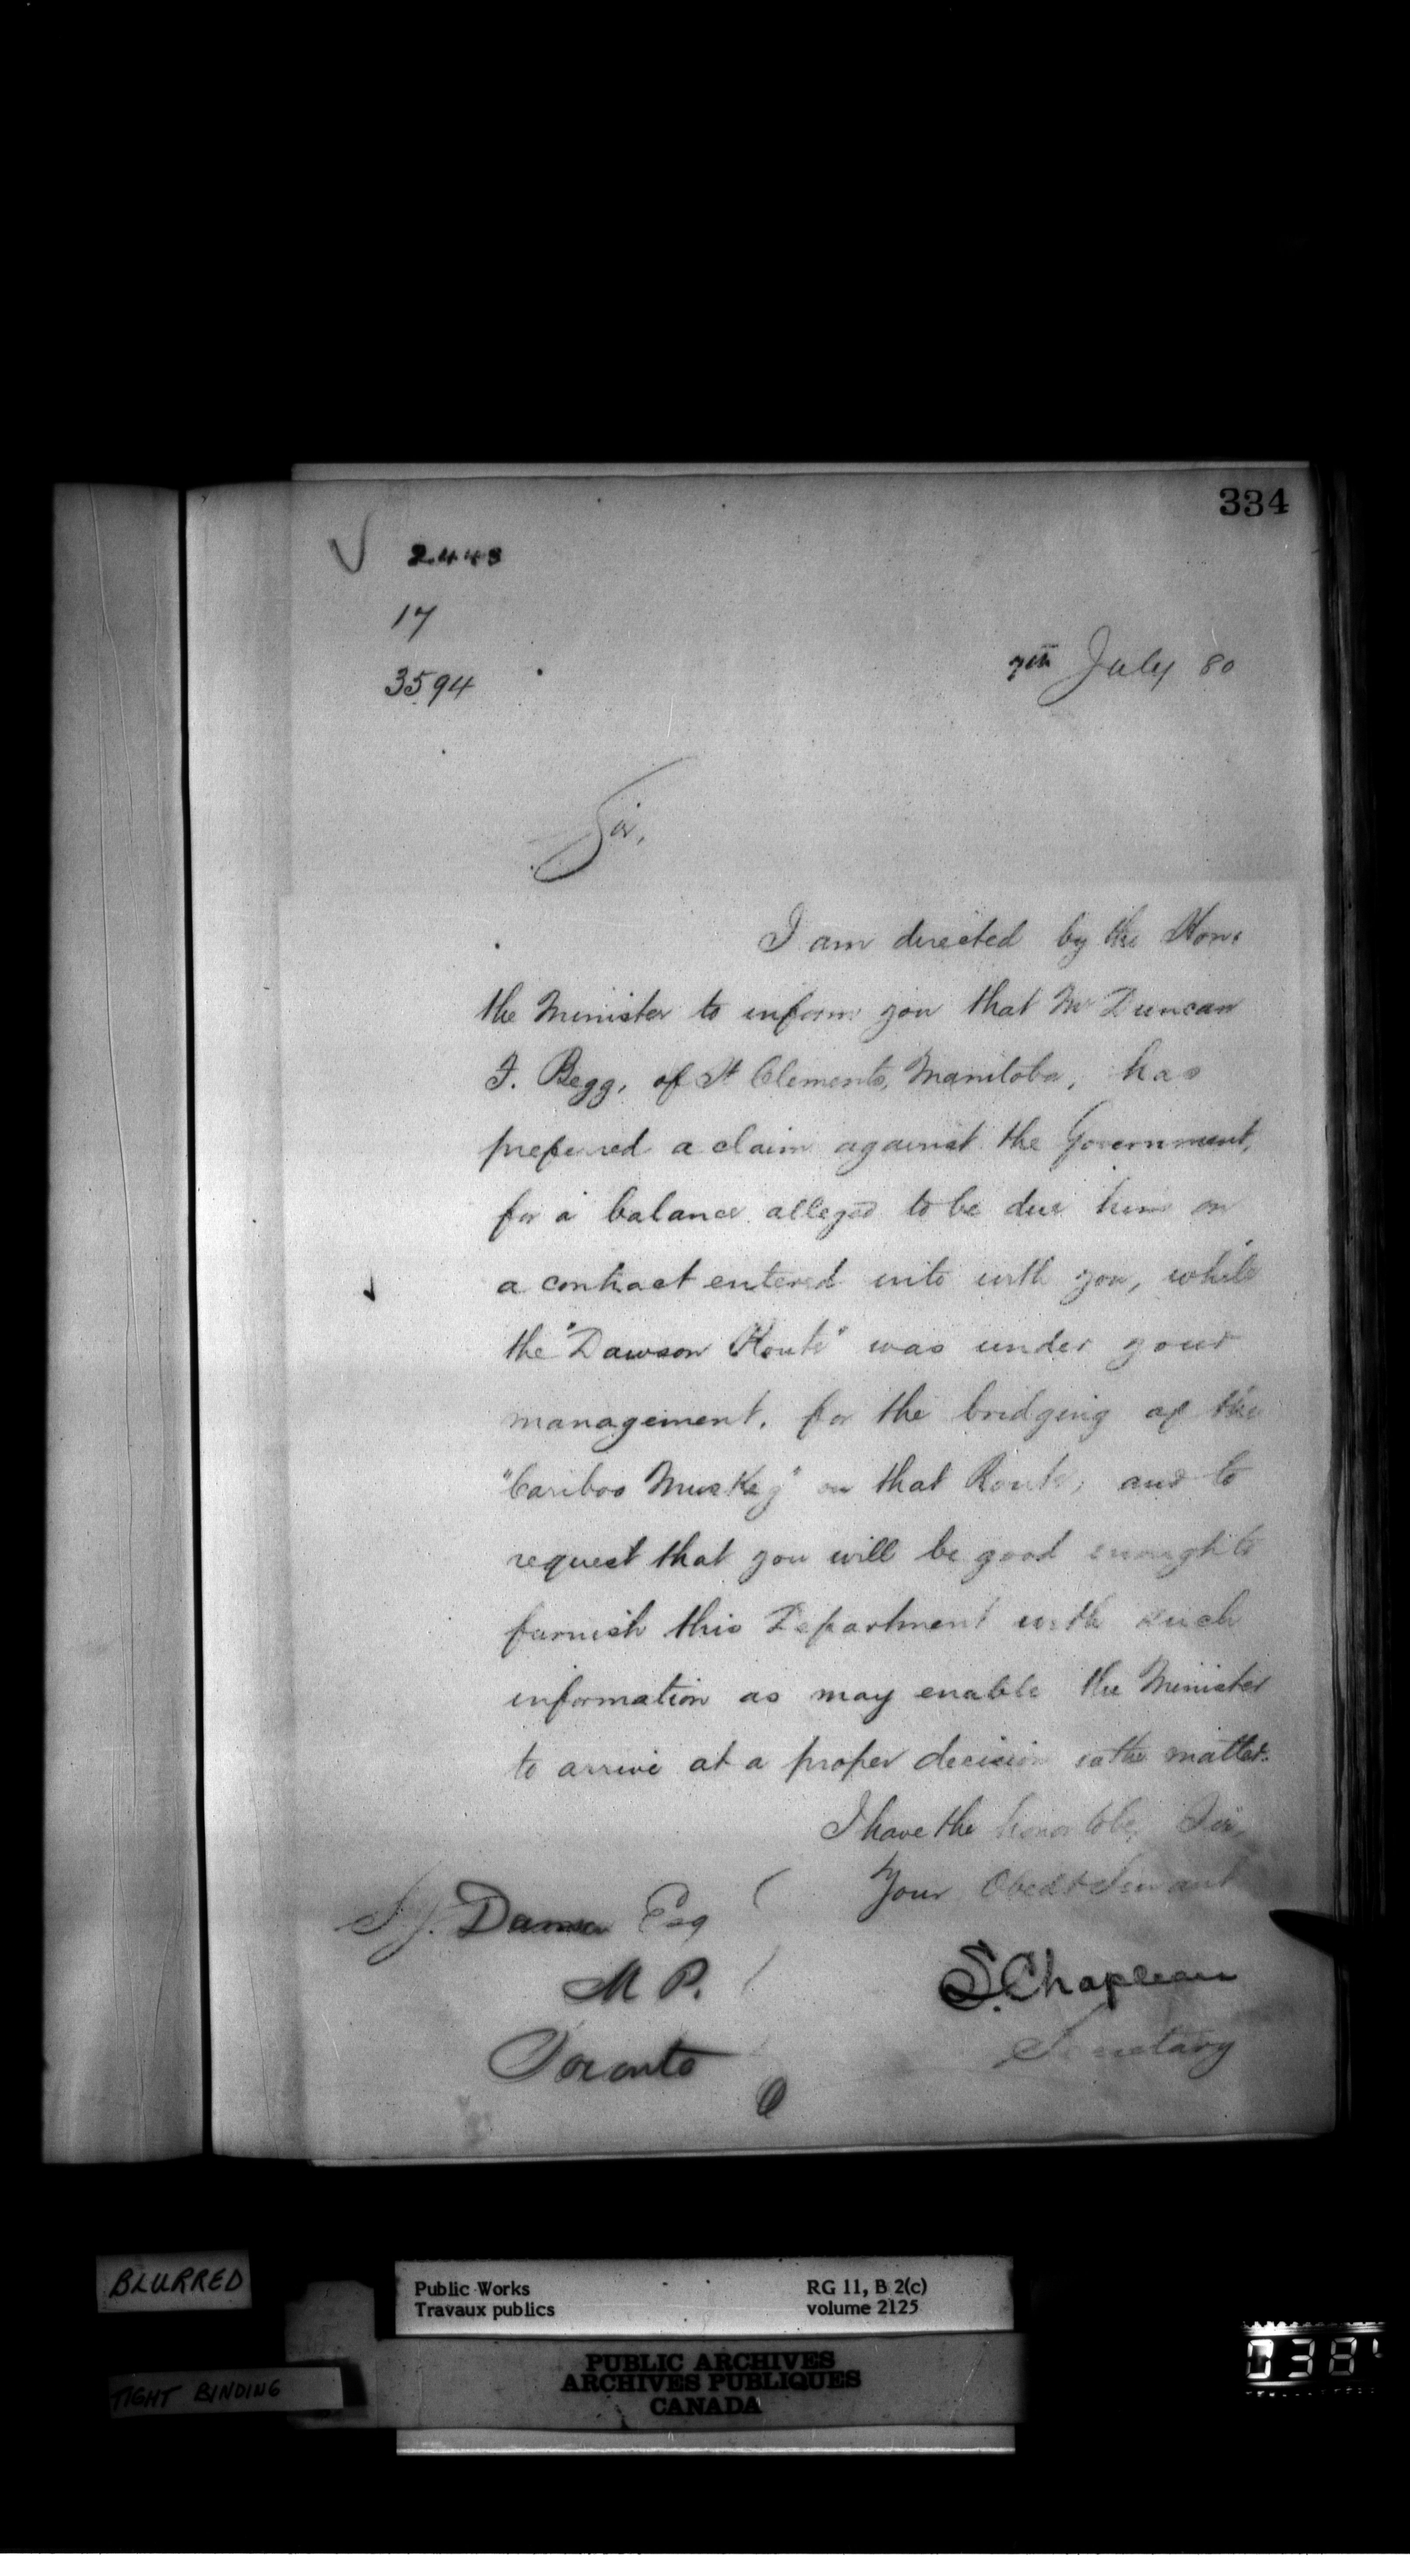 334
2443
17
3594
7th July 80
Sir,
I am directed by the Hon:
the Minister to inform you that Mr Duncan
F. Begg, of St Clements, Manitoba, has
preferred a claim against the Government,
for a balance alleged to be due him on
a contract entered into with you, while
the "Dawson Route" was under your
management, for the bridging of the
"Cariboo Muskeg" on that Route, and to
request that you will be good enough to
furnish this Department with such
information as may enable the Minister
to arrive at a proper decision in the matter.
I have the honor to be, Sir,
Your Obedt Servant
S. J. Dawson Esq
M P.
Toronto
S. Chapleau
Secretary
BLURRED
TIGHT BINDING
Public Works
Travaux publics
RG 11, B 2(c)
volume 2125
PUBLIC ARCHIVES
ARCHIVES PUBLIQUES
CANADA
038